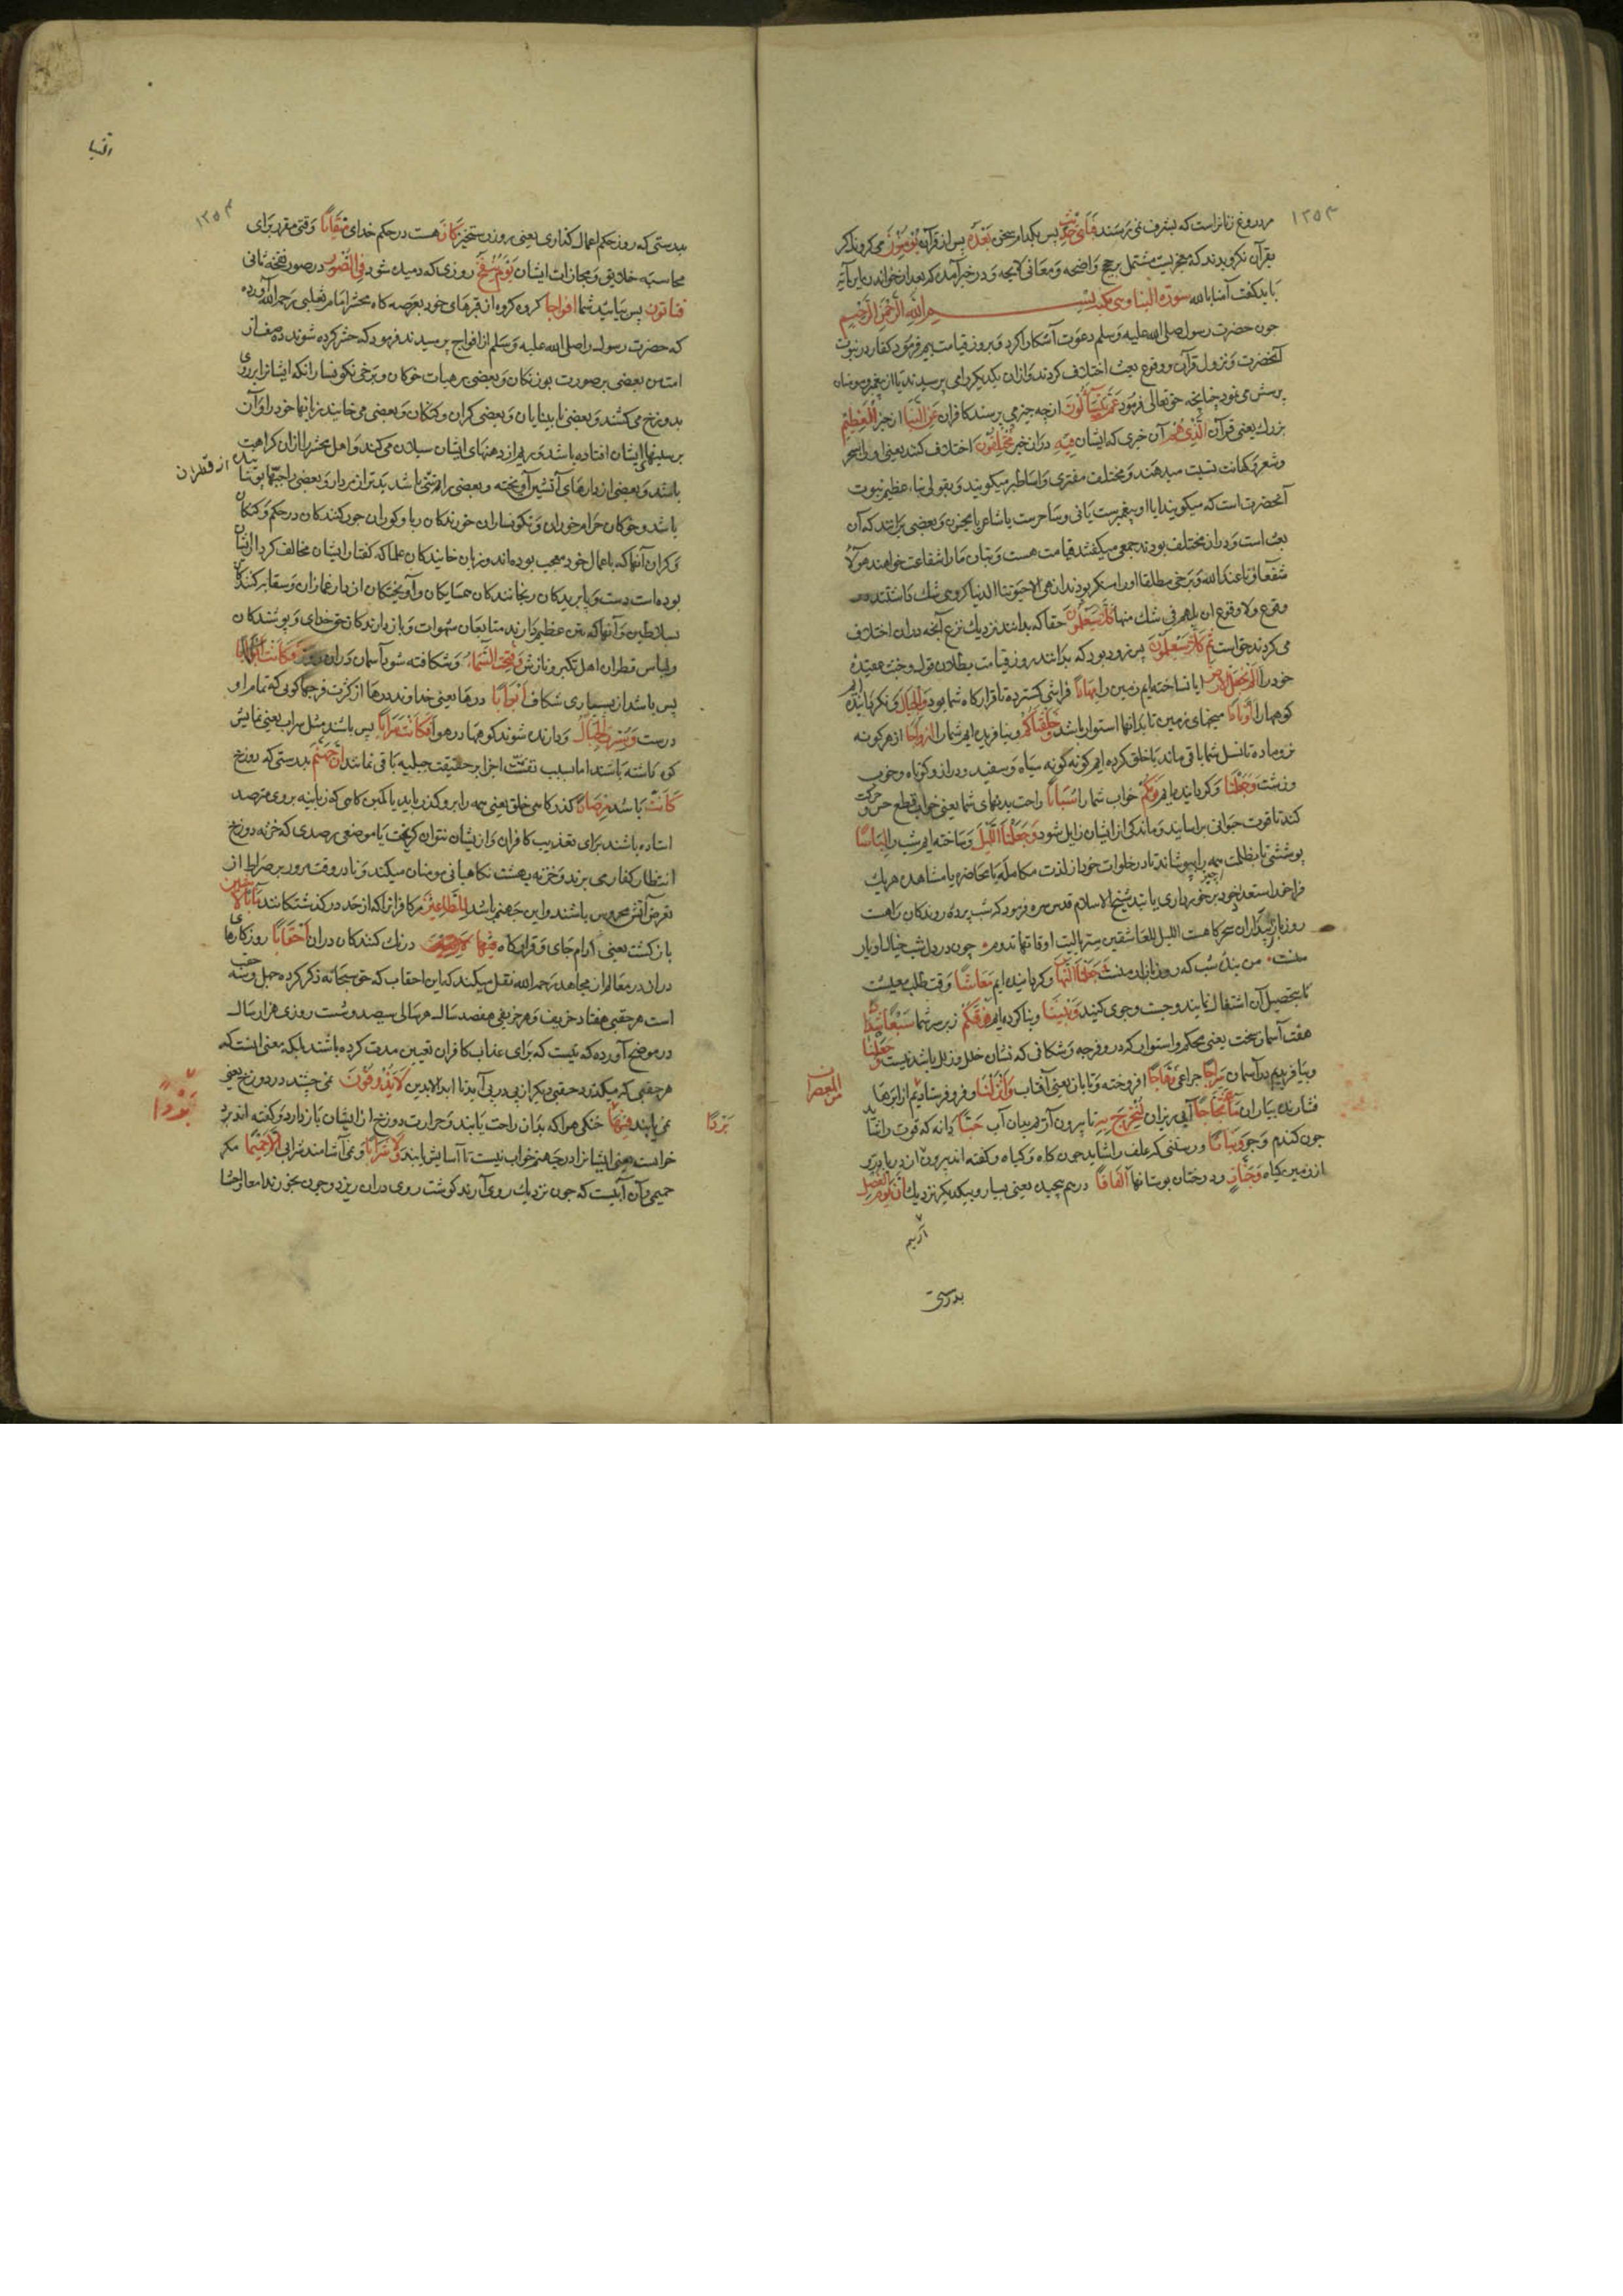 ١٢٥٣
مر دروغ زنانراست که بشرف نمی‌رسند فَبِأَيِّ حَدِيثٍ پس بکدام سخن بَعْدَهُ پس از قرآن يُؤْمِنُونَ می‌کروند اکر
بقرآن نکرویدند که معجزیست مشتمل بر حجج واضحه و معانی لایحه و در خبر آمده که بعد از خواندن این آیه
باید کفت آمنا بالله سورة النبا وهی مکیه بسم الله الرحمن الرحیم
چون حضرت رسول صلی الله علیه وسلم دعوت آشکارا کرد و بروز قیامت بیم فرمود کفار در نبوت
آنحضرت و نزول قرآن و وقوع بعث اختلاف کردند و از آن یکدیکر را می پرسیدند یا از پیغمبر و مومنان
پرسش می‌نمود چنانچه حق تعالی فرمود عَمَّ يَتَسَاءَلُونَ از چه چیز می پرسند کافران عَنِ النَّبَإِ از خبر الْعَظِيمِ
بزرك یعنی قرآن الَّذِي هُمْ آن خبری که ایشان فِيهِ در آن خبر مُخْتَلِفُونَ اختلاف کنند یعنی او را بسحر
وشعر و کهانت نسبت میدهند و مختلف مفتری و اساطیر میکویند و بقولی نباء عظیم نبوت
آنحضرت است که میکویند ایا او پیغمبرست یا نی و ساحرست یا شاعر یا مجنون و بعضی برانند که آن
بعث است و در آن مختلف بودند جمعی میکفتند قیامت هست و بتان ما را شفاعت خواهند هولاء
شفعاؤنا عند الله و برخی مطلقا او را منکر بودند ان هی الا حیوتنا الدنیا کروهی شك داشتند در
وقوع ولا وقوع آن بل هم فی شك منها كَلَّا سَيَعْلَمُونَ حقا که بدانند نزدیك نزع آنچه در آن اختلاف
می کردند حق است ثُمَّ كَلَّا سَيَعْلَمُونَ پس زود بود که بدانند بروز قیامت بطلان قول و خبث عقیده
خود را أَلَمْ نَجْعَلِ الْأَرْضَ ایا نساخته ایم زمین را مِهَادًا فراشی کسترده تا قرارکاه شما بود وَالْجِبَالَ و نکردانیده ایم
کوهها را أَوْتَادًا میخهای زمین تا بدانها استوار باشد وَخَلَقْنَاكُمْ و بیافریده ایم شما را أَزْوَاجًا از هر کونه
نر و ماده تا نسل شما باقی ماند یا خلق کرده ایم کونه کونه سیاه و سفید و دراز و کوتاه و خوب
وزشت وَجَعَلْنَا و کردانیده ایم نَوْمَكُمْ خواب شما را سُبَاتًا راحت بدنهای شما یعنی خواب قطع حس و حرکت
کند تا قوت حیوانی براسایند و ماندکی از ایشان زایل شود وَجَعَلْنَا اللَّيْلَ و ساخته ایم شب را لِبَاسًا
پوششی تا بظلمت همه چیز را بپوشاند تا در خلوات خود از لذت مکالمه یا محاضره یا مشاهده هریك
فراخور استعداد خود برخورداری یابند شیخ الاسلام قدس سره فرمود که شب پرده روندکان راهست
روز بازار بیداران سحرکاهست اللیل للعاشقین ستر یالیت اوقاتها تدوم چون در دل شب خیال او یار
منست من بنده شب که روز بازار منست وَجَعَلْنَا النَّهَارَ و کردانیده ایم مَعَاشًا وقت طلب معیشت
تا بتحصیل آن اشتغال نمایند و جست وجوی کنید وَبَنَيْنَا و بنا کرده ایم فَوْقَكُمْ زبر سر شما سَبْعًا شِدَادًا
هفت آسمان سخت یعنی محکم و استوار که در و فرجه و شکافی که نشان خلل و زلل باشد نیست وَجَعَلْنَا
وبیافریدیم در آسمان سِرَاجًا چراغی وَهَّاجًا افروخته و تابان یعنی آفتاب وَأَنْزَلْنَا و فرو فرستادیم از ابرها
من المعصرات
فشارنده بباران مَاءً ثَجَّاجًا آبی ریزان لِنُخْرِجَ بِهِ تا بیرون آریم بدان آب حَبًّا دانه که قوت را شاید
چون کندم و جو وَنَبَاتًا و رستنی که علف را شاید چون کاه و کیاه و کفته اند بیرون از دریا در و
از زمین کیاه وَجَنَّاتٍ و درختان بوستانها أَلْفَافًا درهم پیچیده یعنی بسیار و بیکدیکر نزدیك إِنَّ يَوْمَ الْفَصْلِ
آریم
بدرستی
النبا
١٢٥٤
بدرستی که روز حکم اعمال کذاری یعنی روز رستخیز كَانَ هست در حکم خدای مِيقَاتًا وقتی مقرر برای
محاسبه خلایق و مجازات ایشان يَوْمَ يُنْفَخُ روزی که دمیده شود فِي الصُّورِ در صور نفخه ثانی
فَتَأْتُونَ پس بیائید شما أَفْوَاجًا کروه کروه از قبرهای خود بعرصه کاه محشر امام ثعلبی رحمه الله آورده
که حضرت رسول را صلی الله علیه وسلم از افواج پرسیدند فرمود که حشر کرده شوند ده صف از
امت من بعضی بر صورت بوزنکان و بعضی بر هیات خوکان و برخی نکونسار انکه ایشانرا بر روی
بدوزخ می کشند و بعضی نابینایان و بعضی کران و کنکان و بعضی می خایند زبانها خود را و آن
بر سینهای ایشان افتاده باشد و ریم از دهنهای ایشان سیلان می کند و اهل محشر را از آن کراهیت
باشد و بعضی از دارهای آتشین آویخته و بعضی را نتنی باشد بدتر از مردار و بعضی را جبها پوشانیده از قطران
باشد و خوکان حرام خوران و نکونساران خورندکان ربا و کوران جور کنندکان در حکم و کنکان
و کران آنها که باعمال خود معجب بوده اند و زبان خایندکان علما که کفتار ایشان مخالف کردار ایشان
بوده است دست و پا بریدکان رنجانندکان همسایکان و آویختکان از دار غمازان و سعایر کنندکان
بسلاطین و آنها که نتن عظیم دارند متابعان شهوات و بازدارندکان حق خدای و پوشندکان
ولباس قطران اهل تکبر و نازش وَفُتِحَتِ السَّمَاءُ و شکافته شود آسمان در آن روز فَكَانَتْ أَبْوَابًا
پس باشد از بسیاری شکاف أَبْوَابًا درها یعنی خداوند درها از کثرت فرجها کویی که تمام او
درست وَسُيِّرَتِ الْجِبَالُ و رانده شوند کوهها در هوا فَكَانَتْ سَرَابًا پس باشد مثل سراب یعنی نمایش
کوه داشته باشند اما بسبب تفتت اجزا بر حقیقت جبلیه باقی نمانند إِنَّ جَهَنَّمَ بدرستی که دوزخ
كَانَتْ باشد مِرْصَادًا کذرکاهی خلق یعنی همه را برو کذر باید یا کمین کاهی که زبانیه بروی مترصد
استاده باشند برای تعذیب کافران و از یشان نتوان کریخت یا موضعی مرصدی که خزنه دوزخ
انتظار کفار می برند و خزنه بهشت نکاهبانی مومنان میکند و تا در وقت مرور بر صراط از
تعرض آتش محروس باشند و این جهنم باشد لِلطَّاغِينَ مر کافرانرا که از حد در کذشتکانند مَآبًا لَابِثِينَ
بازکشت یعنی آرام جای و قرارکاه فِيهَا درنك کنندکان در آن أَحْقَابًا روزکارهای
دراز در معالم از مجاهد رحمه الله نقل میکند که این احقاب که حق سبحانه ذکر کرده چهل و سه حقب
است هر حقبی هفتاد خریف و هر خریفی هفتصد سال هر سالی سیصد و شصت روزی هزار سال
در موضح آورده که نیست که برای عذاب کافران تعیین مدت کرده باشند بلکه معنی اینست که
هر حقبی که میکذرد حقبی دیکر از پی در پی آید تا ابد الابدین لَا يَذُوقُونَ نمی چشند در دوزخ یعنی
نمی یابند فِيهَا خنکی هوا که بدان راحت یابند و حرارت دوزخ از ایشان باز دارد و کفته اند برد
بَرْدًا
بَرْدًا
خوابست یعنی ایشانرا در جهنم خواب نیست تا آسایش یابند وَلَا شَرَابًا و نمی آشامند شرابی إِلَّا حَمِيمًا مکر
حمیمی و آن آبیست که چون نزدیك روی آرند کوشت روی در آن ریزد و چون بخورند امعا